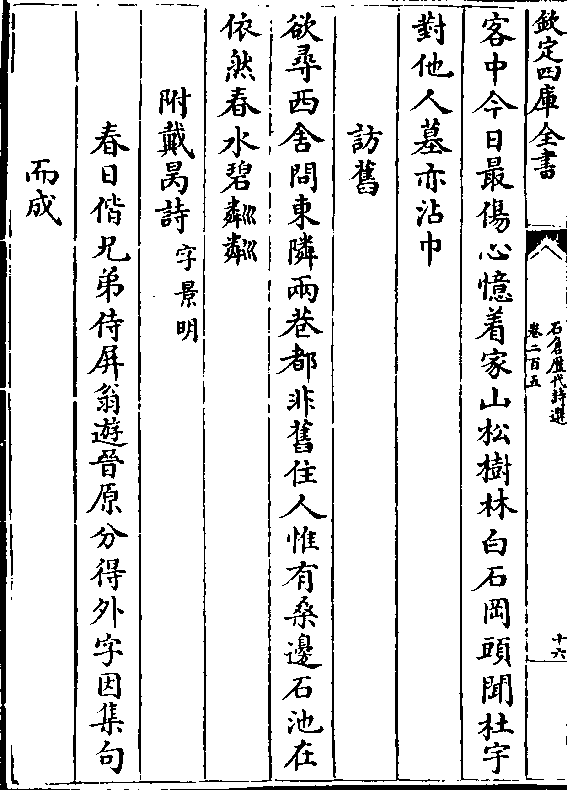 欽定四庫全書
石倉歷代詩選
卷二百五
十六
客中今日最傷心憶着家山松樹林白石岡頭聞杜宇
對他人墓亦沾巾
訪舊
欲尋西舍問東隣兩巷都非舊住人惟有桑邊石池在
依然春水碧粼粼
附戴昺詩字景明
春日偕兄弟侍屏翁遊晉原分得外字因集句
而成